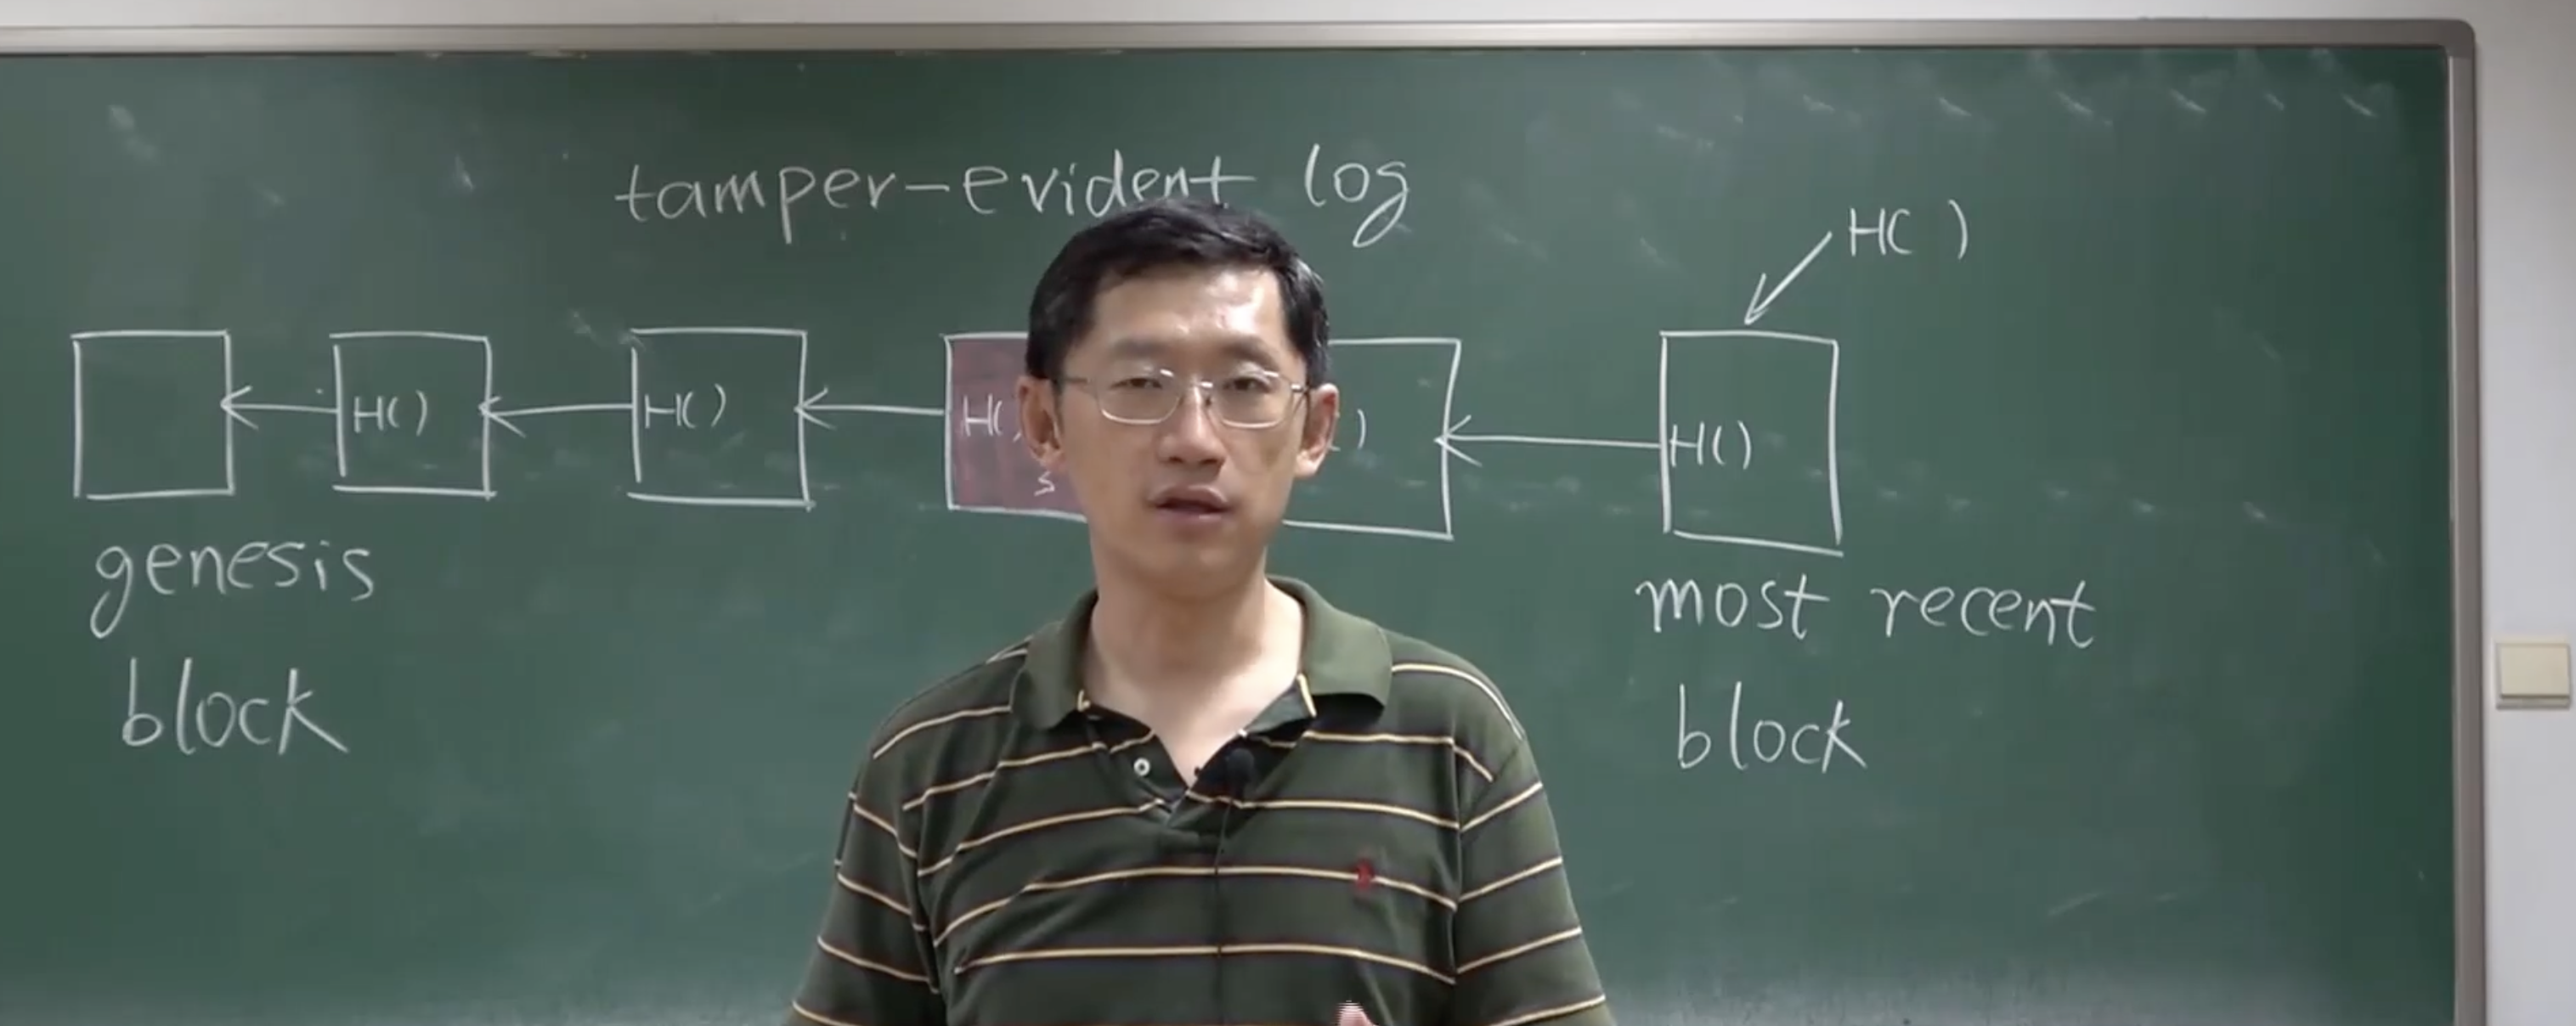 tamper-evident log
H( )
H() H() H( ) H()
genesis
block
most recent
block